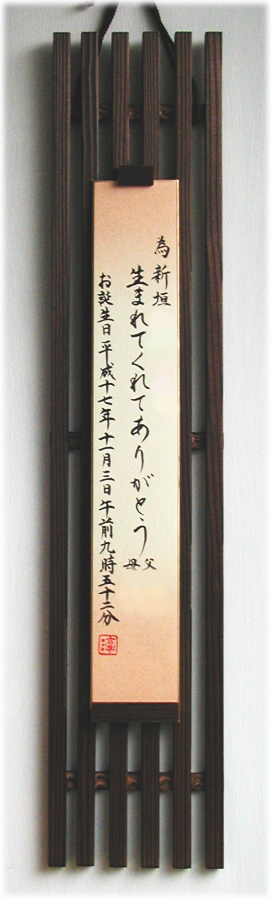 為 新垣
生まれてくれてありがとう
父
母
お誕生日 平成十七年十一月三日 午前九時五十二分